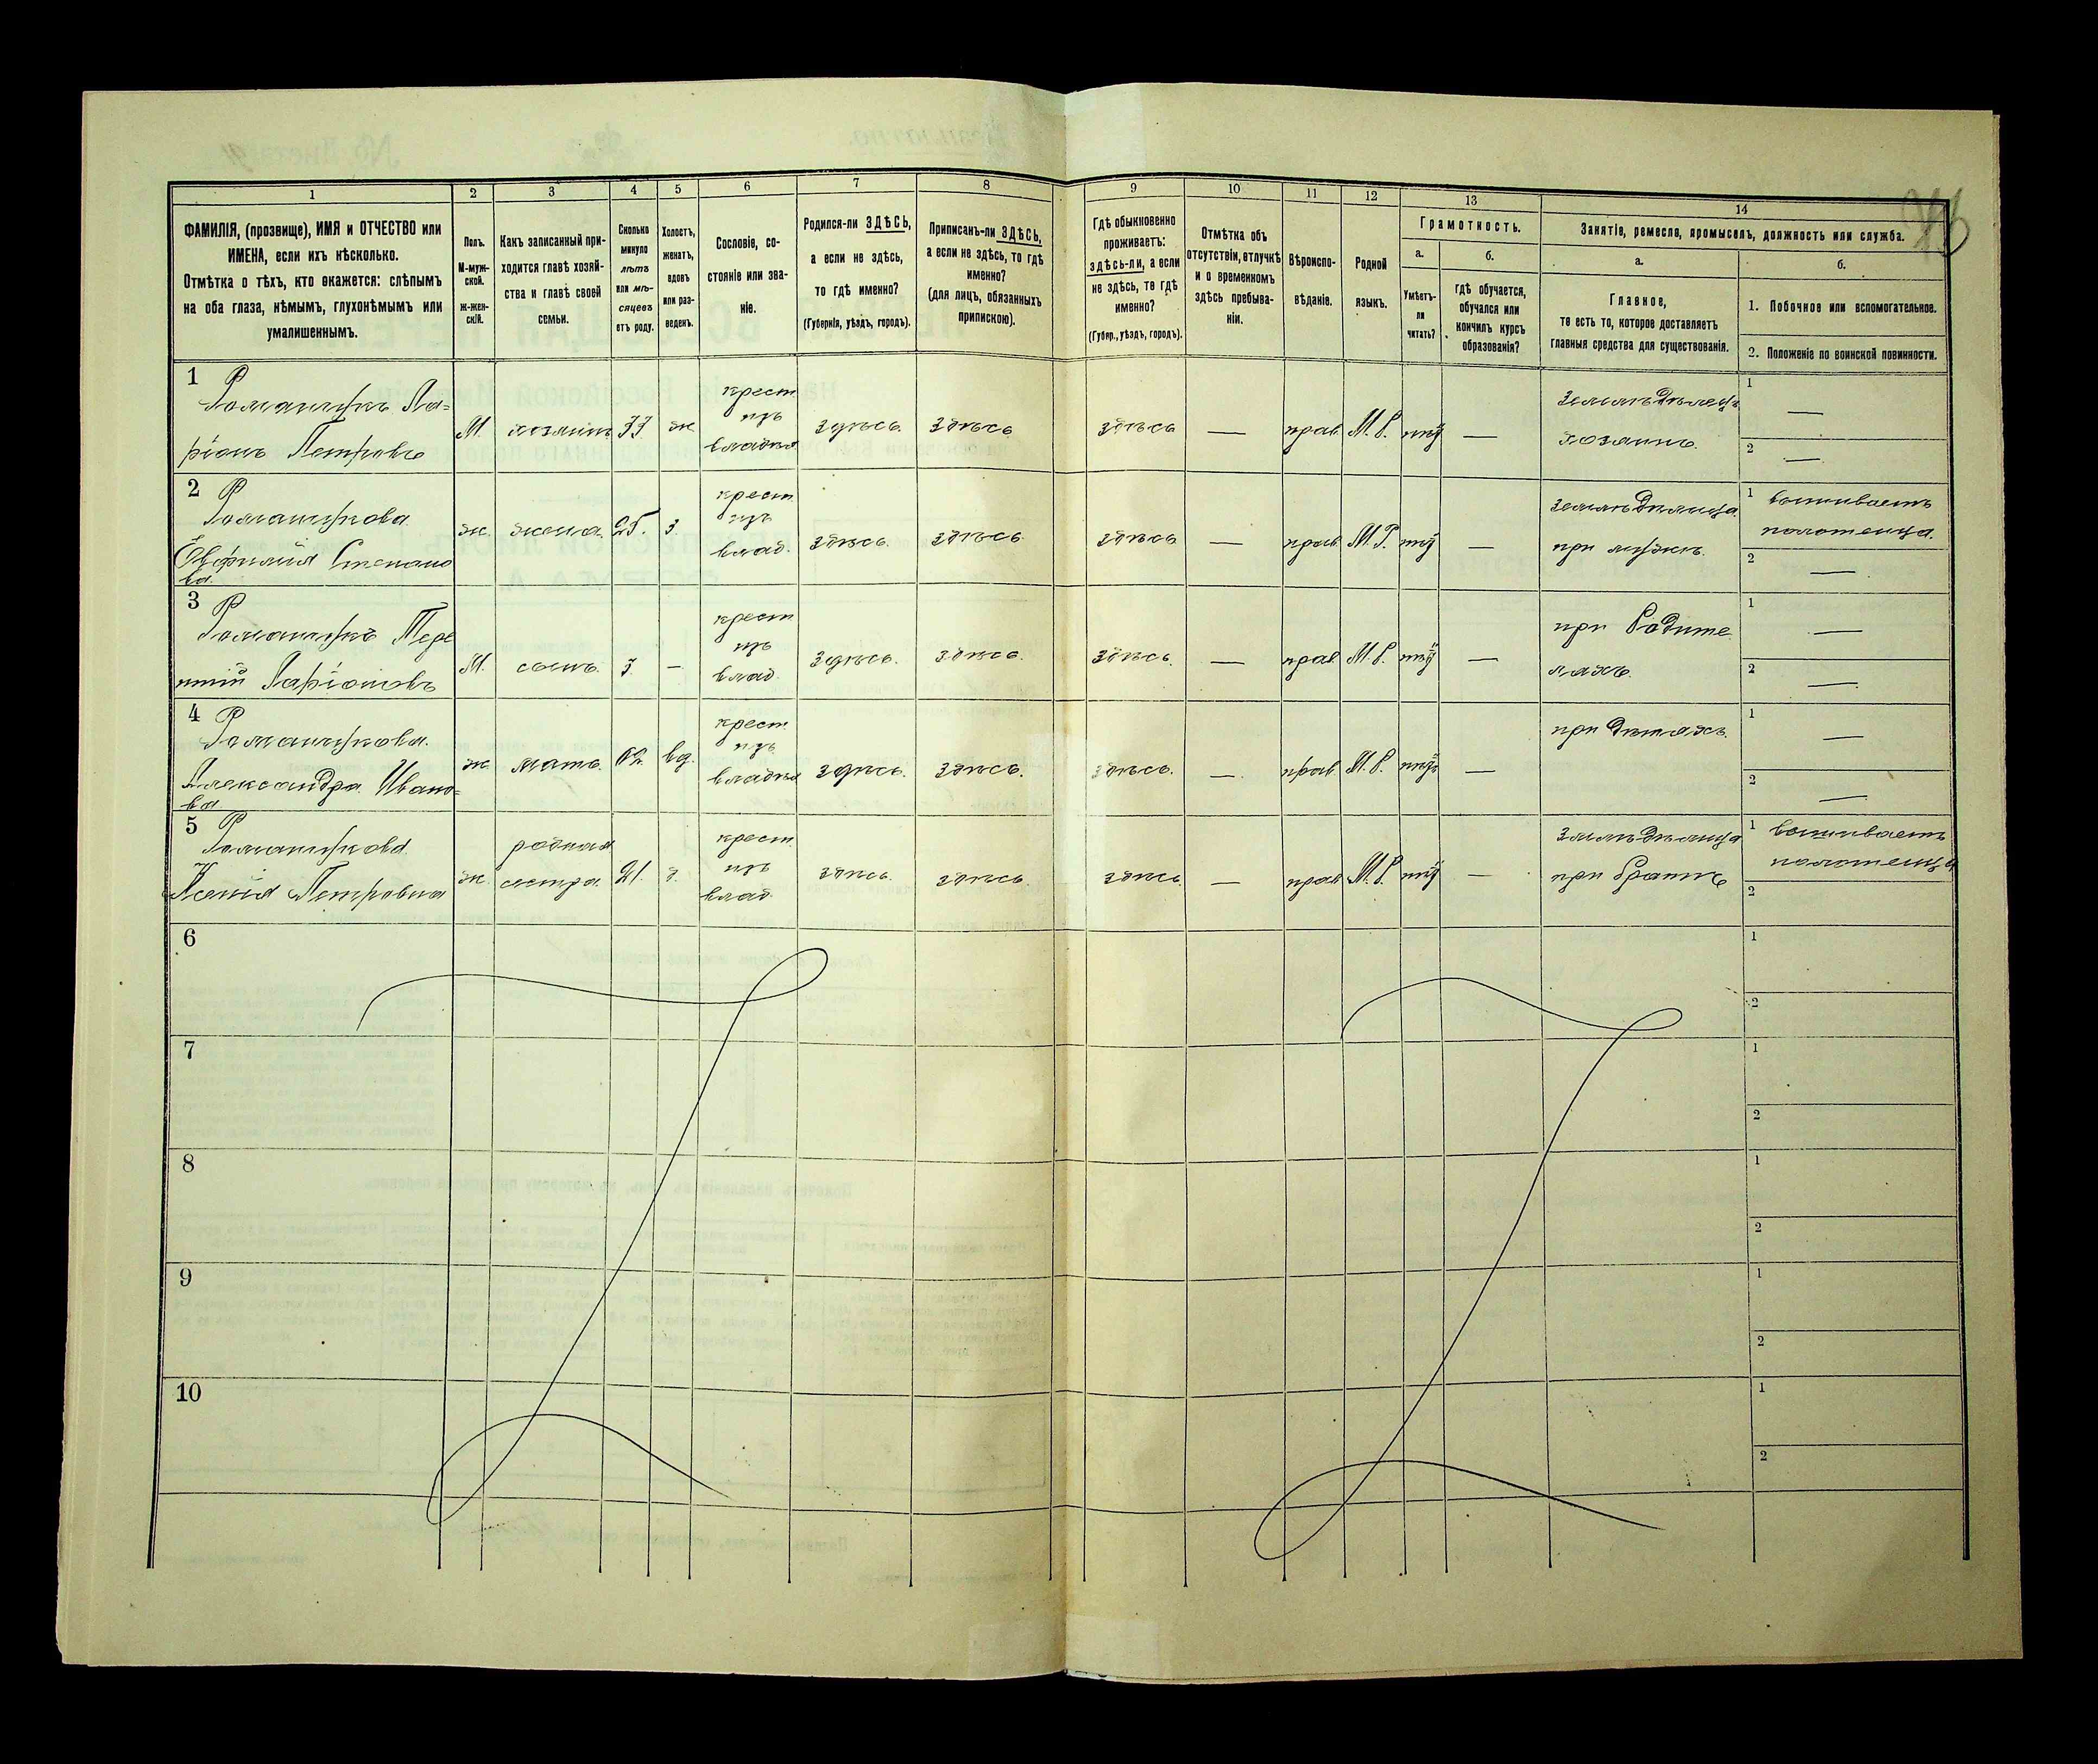 1 2 3 4 5 6 7 8 9 10 11 12 13 14
ФАМИЛІЯ, (прозвище), ИМЯ и ОТЧЕСТВО или
ИМЕНА, если ихъ нѣсколько.
Отмѣтка о тѣхъ, кто окажется: слѣпымъ
на оба глаза, нѣмымъ, глухонѣмымъ или
умалишеннымъ.
Полъ.
М-муж-
ской.
ж-жен-
скій.
Какъ записанный при-
ходится главѣ хозяй-
ства и главѣ своей
семьи.
Сколько
минуло
лѣтъ
или мѣ-
сяцевъ
отъ роду.
Холостъ,
женатъ,
вдовъ
или раз-
веденъ.
Сословіе, со-
стояніе или зва-
ніе.
Родился-ли ЗДѢСЬ,
а если не здѣсь,
то гдѣ именно?
(Губернія, уѣздъ, городъ).
Приписанъ-ли ЗДѢСЬ,
а если не здѣсь, то гдѣ
именно?
(для лицъ, обязанныхъ
припискою).
Гдѣ обыкновенно
проживаетъ:
здѣсь-ли, а если
не здѣсь, то гдѣ
именно?
(Губер., уѣздъ, городъ).
Отмѣтка объ
отсутствіи, отлучкѣ
и о временномъ
здѣсь пребыва-
ніи.
Вѣроиспо-
вѣданіе.
Родной
языкъ.
Грамотность.
а.
Умѣетъ-
ли
читать?
б.
гдѣ обучается,
обучался или
кончилъ курсъ
образованія?
Занятіе, ремесло, промыселъ, должность или служба.
а.
Главное,
то есть то, которое доставляетъ
главныя средства для существованія.
б.
1. Побочное или вспомогательное.
2. Положеніе по воинской повинности.
1 Романчукъ Ла=
ріонъ Петровъ
М. хозяинъ 33 ж.
крест.
изъ
владѣл
здѣсь. здѣсь здѣсь — прав. М.Р. —
земледѣлецъ
хозяинъ.
1 —
2 —
2 Романчукова
Евфимія Степано
ва
ж. жена. 25. з.
крест.
изъ
влад.
здѣсь. здѣсь. здѣсь — прав. М.Р. —
земледѣлица
при мужѣ.
1 вышиваетъ
полотенца.
2 —
3 Романчукъ
Ларіоновъ
М. сынъ. 3. —
крест.
изъ
влад.
здѣсь. здѣсь. здѣсь. — прав. М.Р. —
при Родите
ляхъ.
1 —
2 —
4 Романчукова.
Александра Ивано=
ва
ж. мать. вд.
крест.
изъ
владѣл
здѣсь. здѣсь. здѣсь. — прав. М.Р. —
при дѣтяхъ.
1 —
2 —
5 Романчукова
Ксенія Петровна
ж.
родная
сестра. 21. д.
крест.
изъ
влад.
здѣсь. здѣсь. здѣсь. — прав. М.Р. —
земледѣлица
при братѣ
1 вышиваетъ
полотенца
2
6 1
2
7 1
2
8 1
2
9 1
2
10 1
2